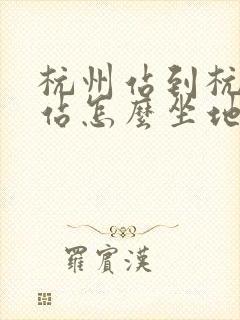 杭州佔到杭
佔怎麼坐地
羅賓漢